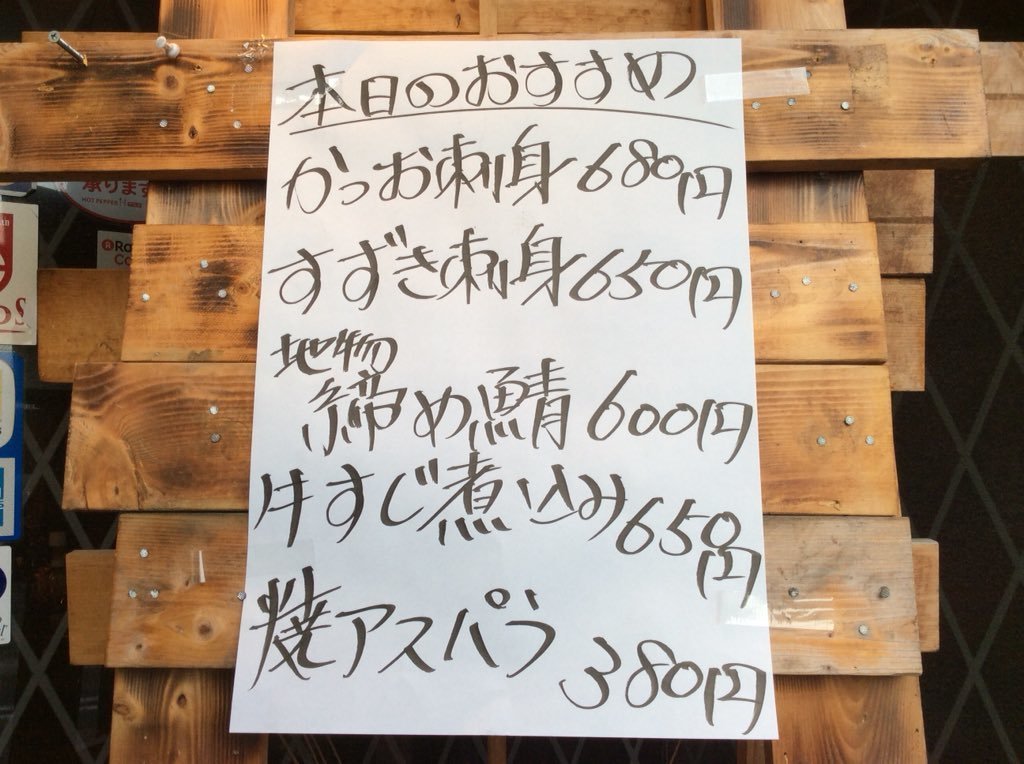 本日のおすすめ
かつお刺身680円
すずき刺身650円
地物
締め鯖 600円
牛すじ煮込み650円
焼アスパラ 380円
承ります
HOT PEPPER